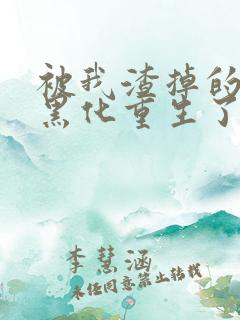 被我渣掉的
黑化重生了
李慧涵
未经同意禁止转载